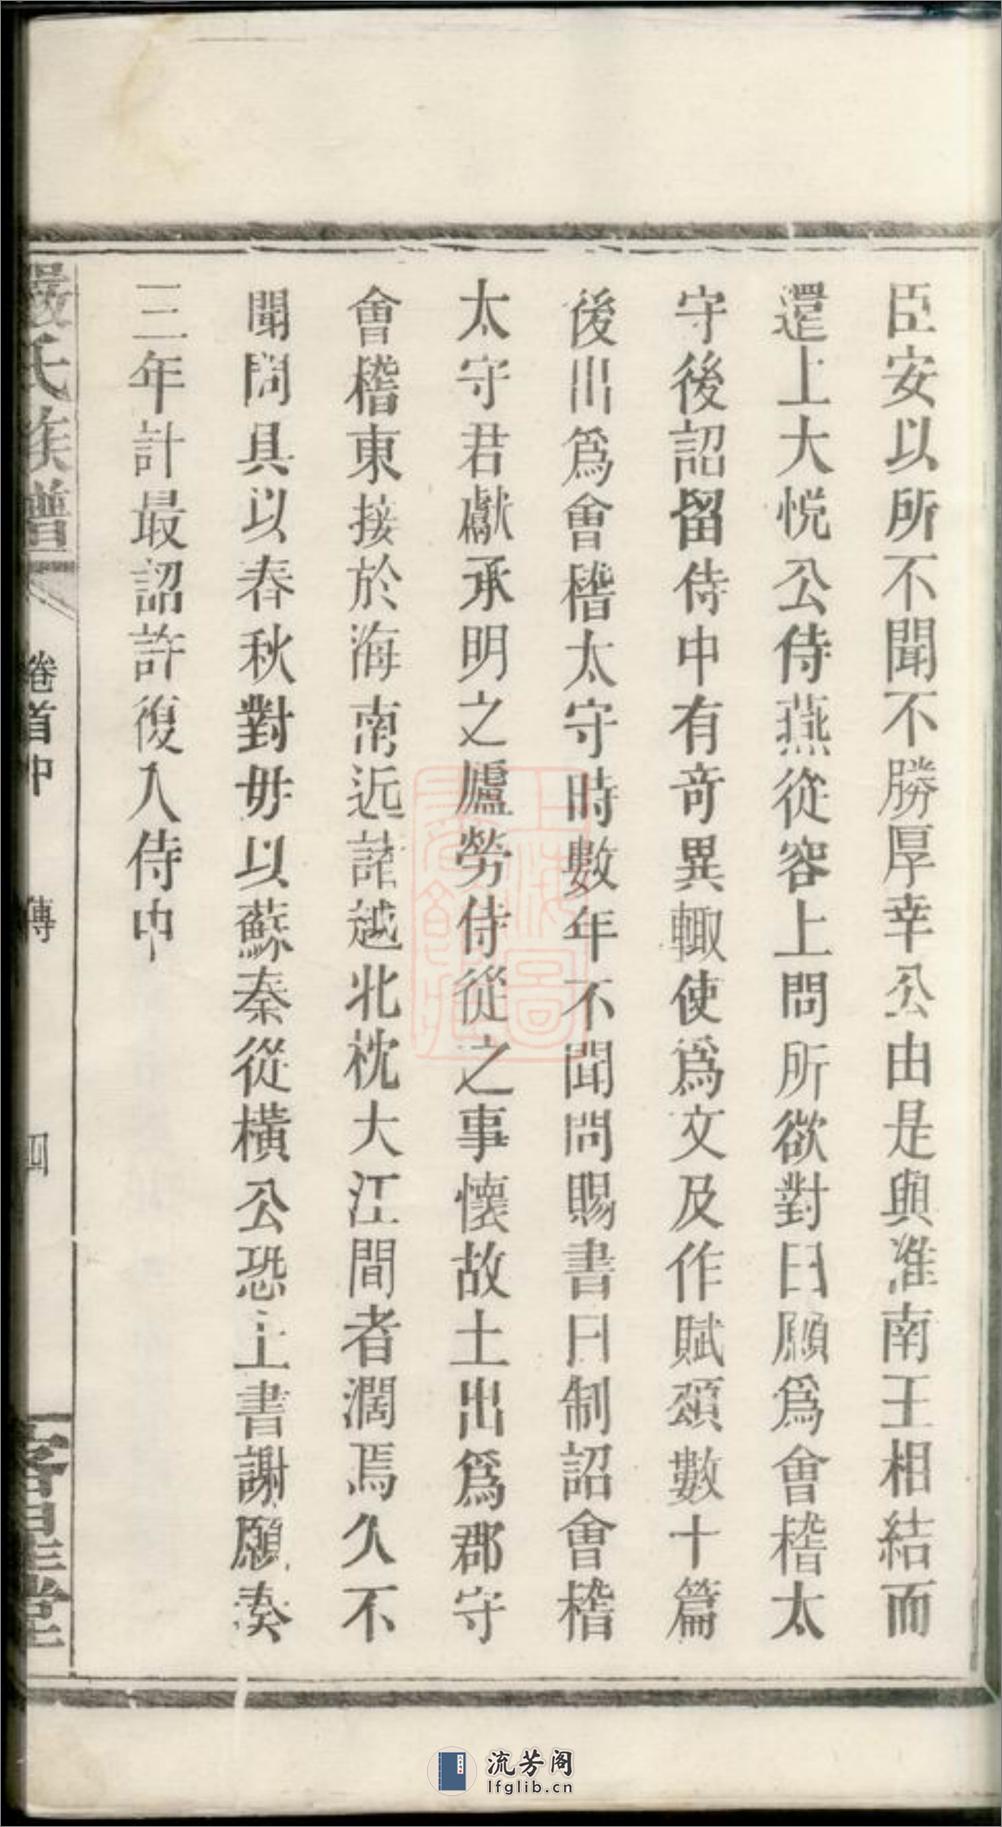 臣安以所不聞不勝厚幸公由是與淮南王相結而
還上大悅公侍燕從容上問所欲對曰願爲會稽太
守後詔留侍中有奇異輙使爲文及作賦頌數十篇
後出爲會稽太守時數年不聞問賜書曰制詔會稽
太守君獻承明之廬勞侍從之事懷故土出爲郡守
會稽東接於海南近諸越北枕大江間者濶焉久不
聞問具以春秋對毋以蘇秦從橫公恐上書謝願奏
三年計最詔許復入侍中
嚴氏族譜 卷首中 傳 四
上海圖書館藏
流芳阁
lfglib.cn